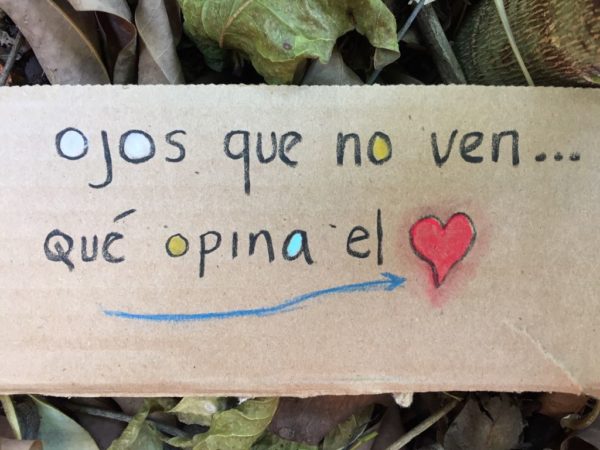 ojos que no ven...
qué opina el